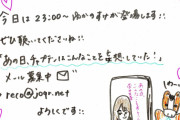 今日は23:00〜ゆかりすけが登場します!!
ぜひ聴いてくださいね!!
「あの日、チョチデンはこんなことを妄想していた！」
メール募集中
reco@joqr.net
よろしくです!!